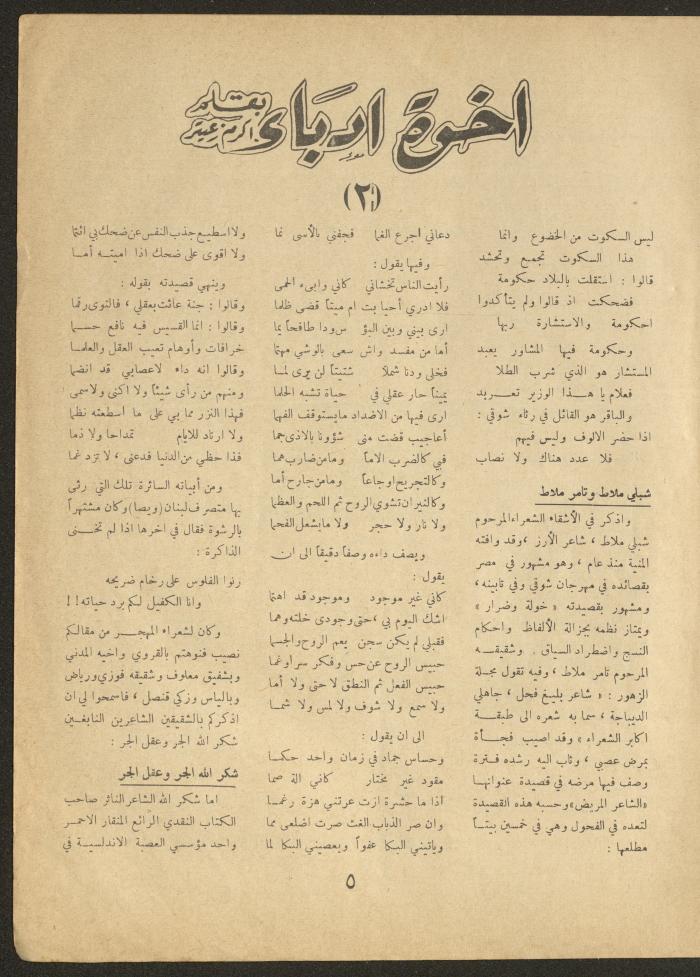 اخوة ادباء
بقلم
اكرم زعيتر
(٢)
ليس السكوت من الخضوع وانما
هذا السكوت تجمع وتحشد
قالوا : استقلت بالبلاد حكومة
فضحكت اذ قالوا ولم يتأكدوا
احكومة والاستشارة ربها
وحكومة فيها المشاور يعبد
المستشار هو الذي شرب الطلا
فعلام يا هذا الوزير تعربد
والباقر هو القائل في رثاء شوقي :
اذا حضر الالوف وليس فيهم
فلا عدد هناك ولا نصاب
شبلي ملاط وتامر ملاط
واذكر في الأشقاء الشعراء المرحوم
شبلي ملاط ، شاعر الأرز ، وقد وافته
المنية منذ عام ، وهو مشهور في مصر
بقصائده في مهرجان شوقي وفي تابينه ،
ومشهور بقصيدته « خولة وضرار »
ويمتاز نظمه بجزالة الألفاظ واحكام
النسج واضطراد السياق . وشقيقه
المرحوم تامر ملاط ، وفيه تقول مجلة
الزهور : « شاعر بليغ فحل ، جاهلي
الديباجة ، سما به شعره الى طبقة
اكابر الشعراء » وقد اصيب فجأة
بمرض عصبي ، وثاب اليه رشده فترة
وصف فيها مرضه في قصيدة عنوانها
«الشاعر المريض» وحسبه هذه القصيدة
لتعده في الفحول وهي في خمسين بيتاً
مطلعها :
دعاني اجرع الغما فجفني بالأسى نما
وفيها يقول :
رأيت الناس تخشاني كاني وابىء الحمى
فلا ادري أحيا بت ام ميتاً قضى ظلما
ارى بيني وبين البؤ س ودا طافحاً يما
أما من مفسد واش سعى بالوشي مهتما
فخلى ودنا شملا شتيتاً لن يرى لما
يميناً حار عقلي في حياة تشبه الحلما
ارى فيها من الاضداد ما يستوقف الفهما
أعاجيب قضت منى شؤونا بالاذى جما
فبي كالضرب الاماً وما من ضارب هما
وكالتجريح اوجاعاً وما من جارح أما
وكالنيران تشوي الروح ثم اللحم والعظما
ولا نار ولا حجر ولا ما يشعل الفحما
ويصف داءه وصفاً دقيقاً الى ان
يقول :
كاني غير موجود وموجود قد اهتما
اشك اليوم بي ، حتى وجودي خلته وهما
فقبلي لم يكن سجن يعم الروح والجسما
حبيس الروح عن حس وفكر سر او غما
حبيس الفعل ثم النطق لا حتى ولا أما
ولا سمع ولا شوف ولا لمس ولا شما
الى ان يقول :
وحساس جماد في زمان واحد حكما
مقود غير مختار كاني الة صما
اذا ما حشرة ازت عرتني هزة رغما
وان صر الذباب الغث صرت اضلعى مما
وياتيني البكا عفواً ويعصيني البكا لما
ولا اسطيع جذب النفس عن ضحك بي ائتما
ولا اقوى على ضحك اذا اميته أما
وينهي قصيدته بقوله :
وقالوا : جنة عاثت بعقلي ، فالتوى رقما
وقالوا : انما القسيس فيه نافع حسما
خرافات وأوهام تعيب العقل والعلما
وقالوا انه داء لاعصابي قد انضما
ومنهم من رأى شيئاً ولا اكنى ولا سمى
فهذا النزر مما بي على ما اسطعته نظما
ولا ارتاد للايام تمداحا ولا ذما
فذا حظي من الدنيا فدعنى ، لا تزد غما
ومن أبياته السائرة تلك التي رثى
بها متصرف لبنان (ويصا) وكان مشتهراً
بالرشوة فقال في اخرها اذا لم تخنى
الذاكرة :
رنوا الفلوس على رخام ضريحه
وانا الكفيل لكم برد حياته ! !
وكان لشعراء المهجر من مقالكم
نصيب فنوهتم بالقروي واخيه المدني
وبشفيق معلوف وشقيقه فوزي ورياض
وبالياس وزكي قنصل ، فاسمحوا لي ان
اذكركم بالشقيقين الشاعرين النابغين
شكر الله الجر وعقل الجر :
شكر الله الجر وعقل الجر
اما شكر الله الشاعر الناثر صاحب
الكتاب النقدي الرائع المنقار الاحمر
واحد مؤسسي العصبة الاندلسية في
٥